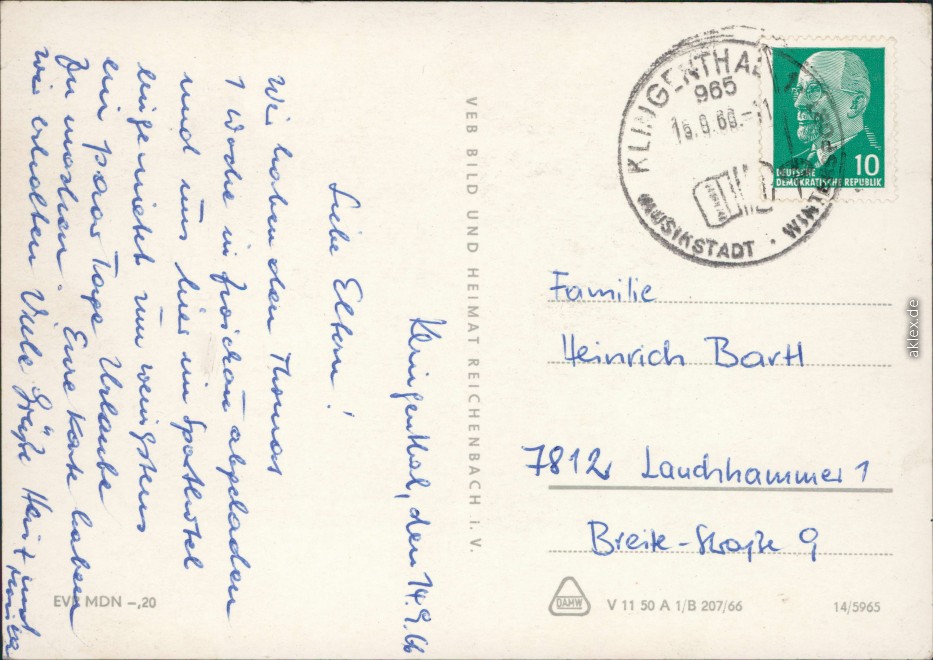 Klingenthal, den 14.9.66
Liebe Eltern!
Wir haben den Thomas
1 Woche in Zwickau abgeladen
und uns hier im Sporthotel
eingemietet um wenigstens
ein paar Tage Urlaub
zu machen. Eure Karte haben
wir erhalten Viele Grüße Heinz und
VEB BILD UND HEIMAT REICHENBACH I. V.
EVP MDN –,20
KLINGENTHAL
965
16.9.66.-11
MUSIKSTADT · WINTERSPORT
DEUTSCHE
DEMOKRATISCHE REPUBLIK
10
Familie
Heinrich Bartl
7812 Lauchhammer 1
Breite-Straße 9
DAMW
V 11 50 A 1/B 207/66
14/5965
aklex.de